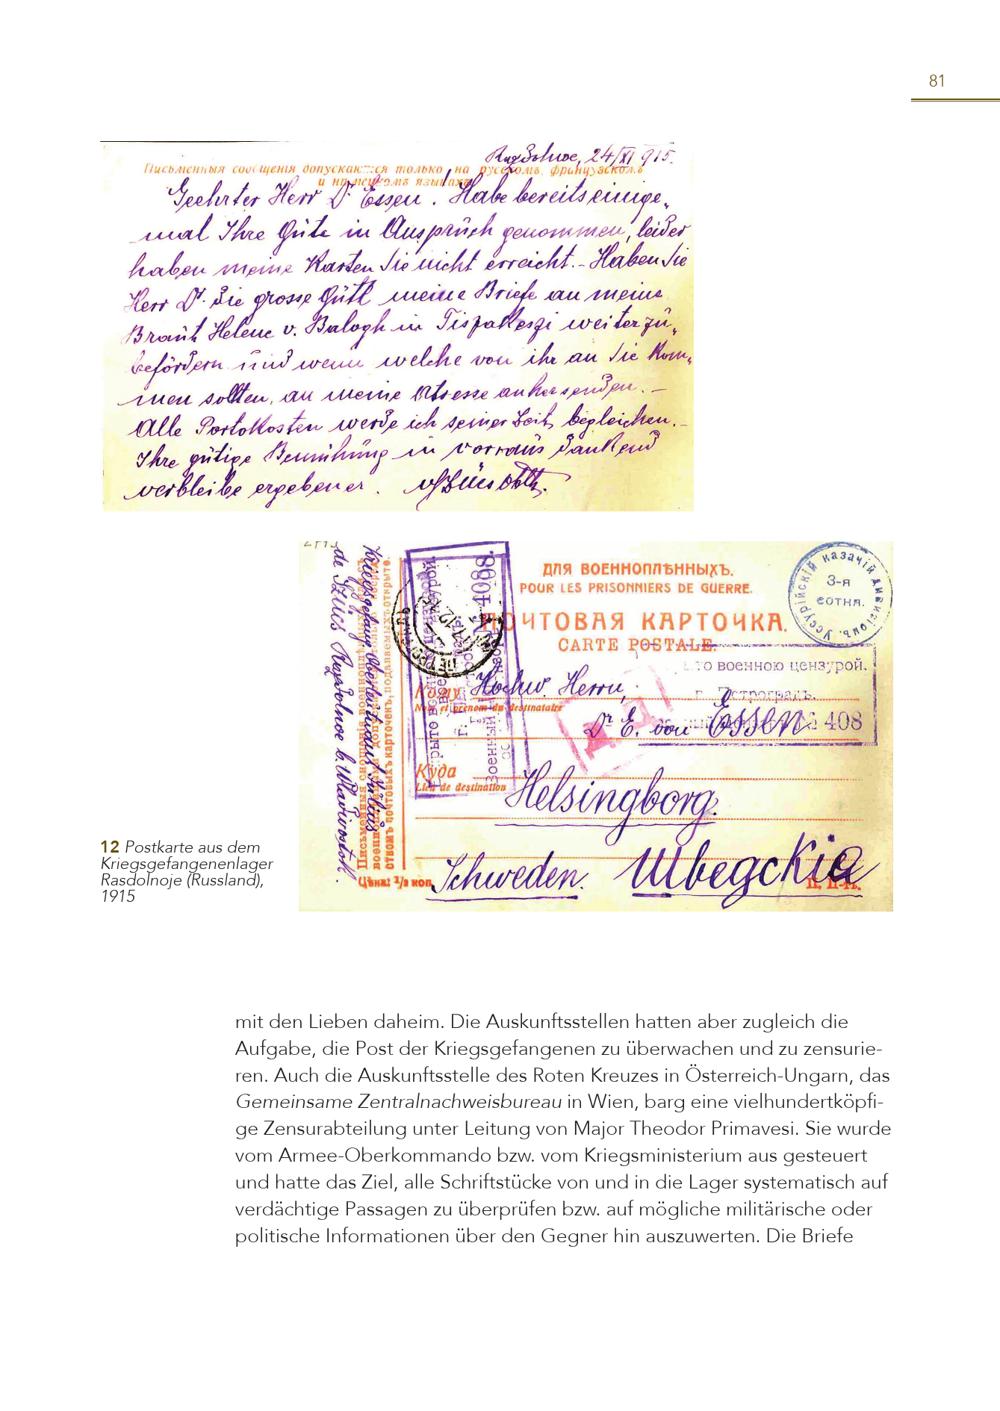 81
Rasdolnoe, 24/XI 915.
Письменныя сообщенія допускаются только на русскомъ, французскомъ
и нѣмецкомъ языкахъ
Geehrter Herr Dr. Essen. Habe bereits einige-
mal Ihre Güte in Anspruch genommen, leider
haben meine Karten Sie nicht erreicht. - Haben Sie
Herr Dr. die grosse Güte meine Briefe an meine
Braut Helene v. Balogh in weiter zu-
befördern und wenn welche von ihr an Sie kom-
men sollten, an meine Adresse anher senden. -
Alle Portokosten werde ich seiner Zeit begleichen. -
Ihre gütige Bemühung in vorraus dankend
verbleibe ergebener.
ДЛЯ ВОЕННОПЛѢННЫХЪ.
POUR LES PRISONNIERS DE GUERRE.
ПОЧТОВАЯ КАРТОЧКА.
CARTE POSTALE.
Уссурійскій казачій дивизіонъ
3-я
сотня.
военною цензурой.
г. Петроградъ.
№ 408
Кому
Hochw. Herrn,
Nom et prénom du destinataire
Dr E. von Essen
Куда
Lieu de destination
Helsingborg.
Schweden.
Шведскія
Цѣна: ½ коп.
Kriegsgefang. Oberleutnant Julius
de Szücs Rasdolnoe b. Wladivostok.
12 Postkarte aus dem
Kriegsgefangenenlager
Rasdolnoje (Russland),
1915
mit den Lieben daheim. Die Auskunftsstellen hatten aber zugleich die
Aufgabe, die Post der Kriegsgefangenen zu überwachen und zu zensurie-
ren. Auch die Auskunftsstelle des Roten Kreuzes in Österreich-Ungarn, das
Gemeinsame Zentralnachweisbureau in Wien, barg eine vielhundertköpfi-
ge Zensurabteilung unter Leitung von Major Theodor Primavesi. Sie wurde
vom Armee-Oberkommando bzw. vom Kriegsministerium aus gesteuert
und hatte das Ziel, alle Schriftstücke von und in die Lager systematisch auf
verdächtige Passagen zu überprüfen bzw. auf mögliche militärische oder
politische Informationen über den Gegner hin auszuwerten. Die Briefe